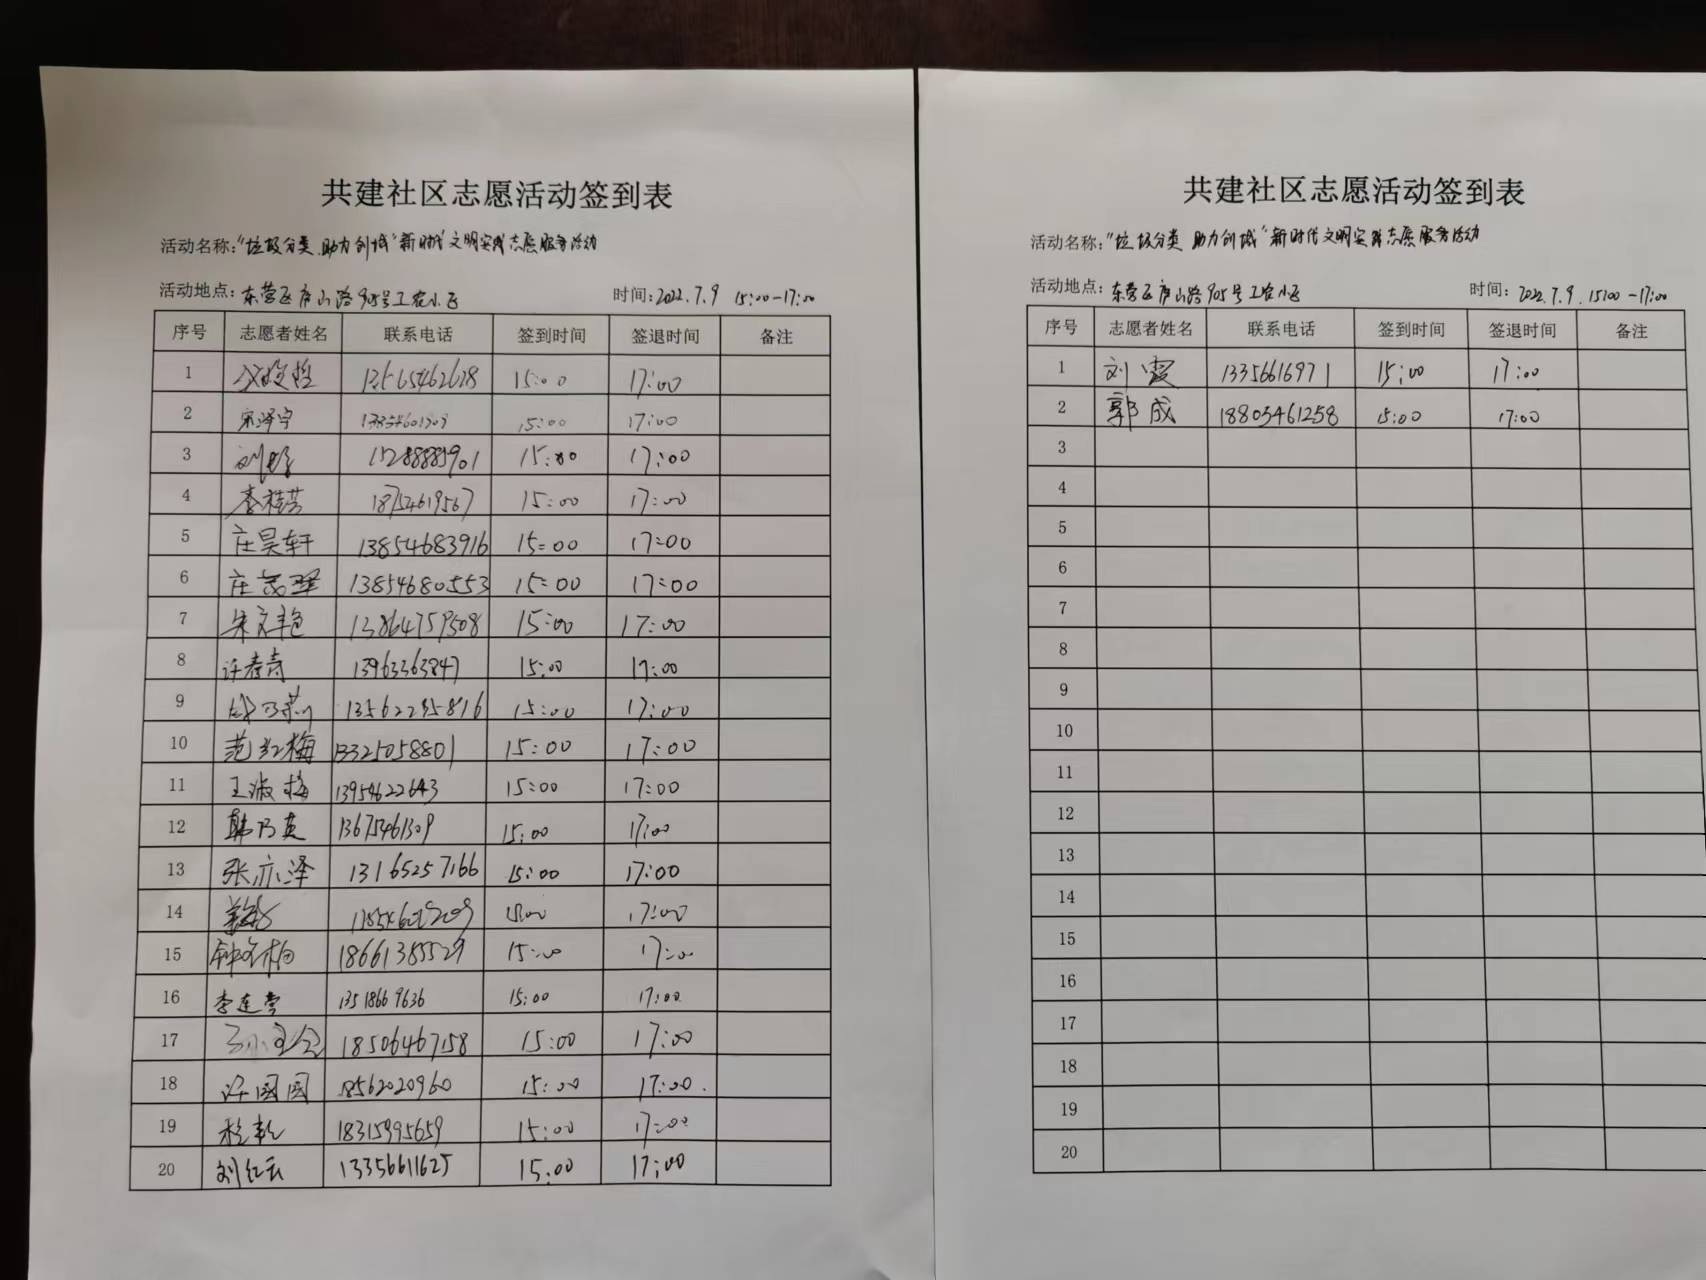 共建社区志愿活动签到表
活动名称:"垃圾分类 助力创城"新时代文明实践志愿服务活动
活动地点:东营区庐山路905号工农小区 时间:2022.7.9 15:00-17:00
序号 志愿者姓名 联系电话 签到时间 签退时间 备注
1 13565462628 15:00 17:00
2 宋泽宇 15:00 17:00
3 15288885901 15:00 17:00
4 李桂芳 18754619567 15:00 17:00
5 庄昊轩 13854683916 15:00 17:00
6 13854680553 15:00 17:00
7 宋文艳 13864759508 15:00 17:00
8 许春青 13963363847 15:00 17:00
9 13562295816 15:00 17:00
10 范红梅 13325058801 15:00 17:00
11 王淑梅 13954622643 15:00 17:00
12 韩乃英 13675461309 15:00 17:00
13 张亦泽 13165257166 15:00 17:00
14 15:00 17:00
15 18661385529 15:00 17:00
16 李连营 15:00 17:00
17 18506467158 15:00 17:00
18 许园园 18562020960 15:00 17:00
19 程乾 18315995659 15:00 17:00
20 刘红云 13356611625 15:00 17:00
共建社区志愿活动签到表
活动名称:"垃圾分类 助力创城"新时代文明实践志愿服务活动
活动地点:东营区庐山路905号工农小区 时间:2022.7.9.15:00-17:00
序号 志愿者姓名 联系电话 签到时间 签退时间 备注
1 刘霞 13356616971 15:00 17:00
2 郭成 18803461258 15:00 17:00
3
4
5
6
7
8
9
10
11
12
13
14
15
16
17
18
19
20